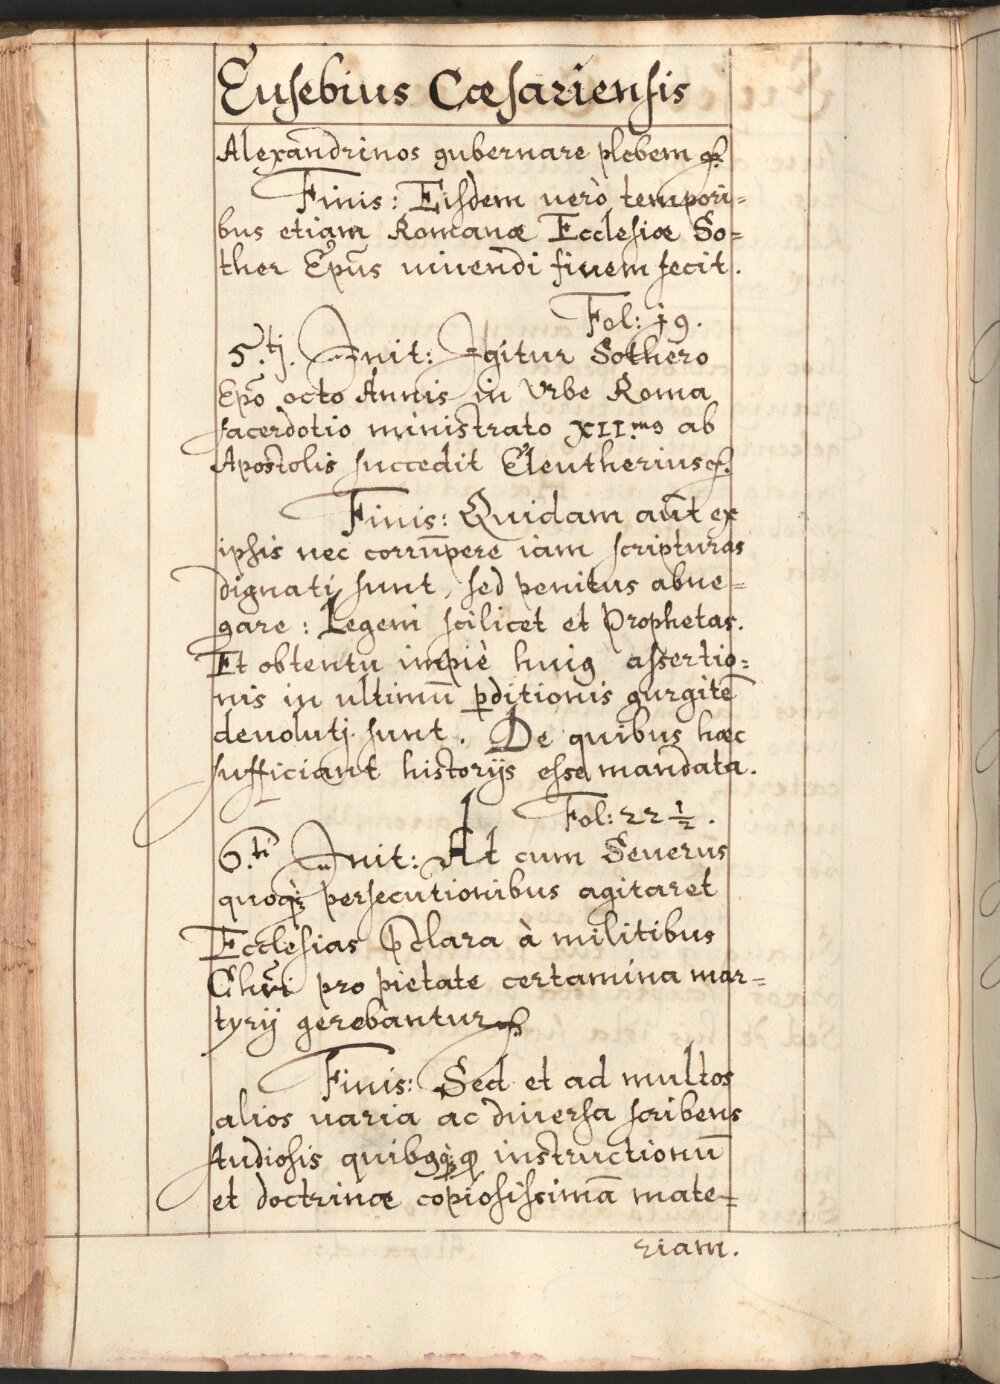 Eusebius Cæsariensis
Alexandrinos gubernare plebem
Finis: Eisdem verò tempori=
bus etiam Romanæ Ecclesiæ So=
ther Epũs uiuendi finem fecit.
Fol: 19.
5.tj. Init: Igitur Sothero
Epõ octo Annis in Vrbe Roma
sacerdotio ministrato XII.mo ab
Apostolis succedit Eleutherius
Finis: Quidam aut̃ ex
ipsis nec corrũpere iam scripturas
dignati sunt, sed penitus abne=
gare: Legem scilicet et Prophetas.
Et obtentu impiè huiꝰ assertio=
nis in ultimũ ꝑditionis gurgitẽ
deuolutj sunt. De quibus hæc
sufficiant historijs esse mandata.
Fol: 22 1/2.
6.ti Init: At cum Seuerus
quoqꝫ persecutionibus agitaret
Ecclesias p̃clara à militibus
Chr̃i pro pietate certamina mar=
tyrij gerebantur
Finis: Sed et ad multos
alios uaria ac diuersa scribens
studiosis quibꝰqꝫ instructionũ
et doctrinæ copiosissimã mate=
riam.